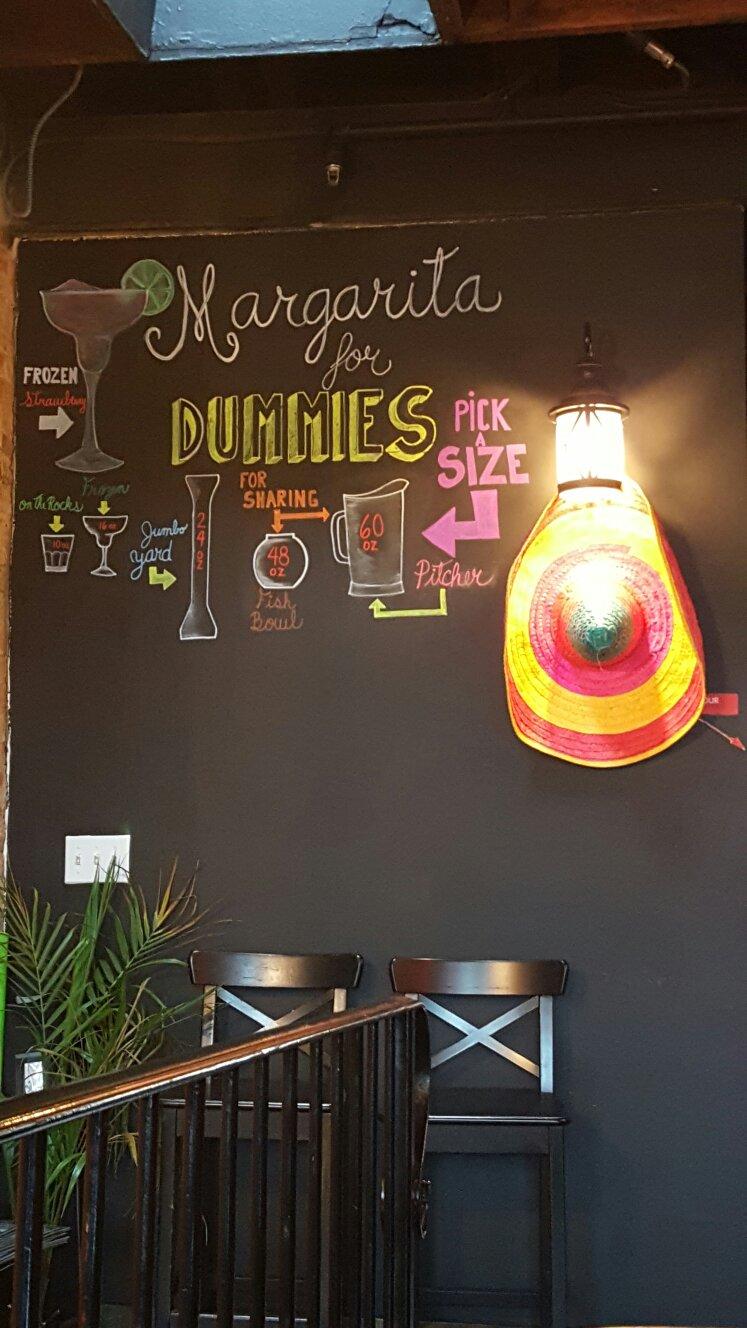 Margarita
for
DUMMIES
FROZEN
Strawberry
PICK
A
SIZE
on the Rocks
10 oz
Frozen
16 oz
Jumbo
yard
24 oz
FOR
SHARING
48
OZ
Fish
Bowl
60
OZ
Pitcher